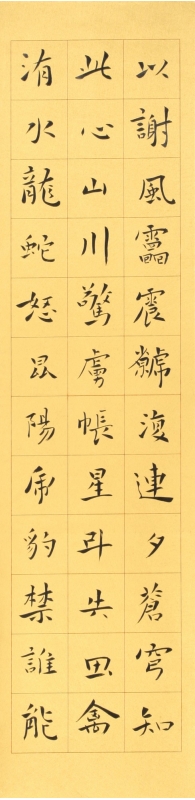 以謝風靁震虩復連夕蒼穹知
此心山川驚虜帳星斗失田禽
洧水龍蛇怒昆陽虎豹禁誰能